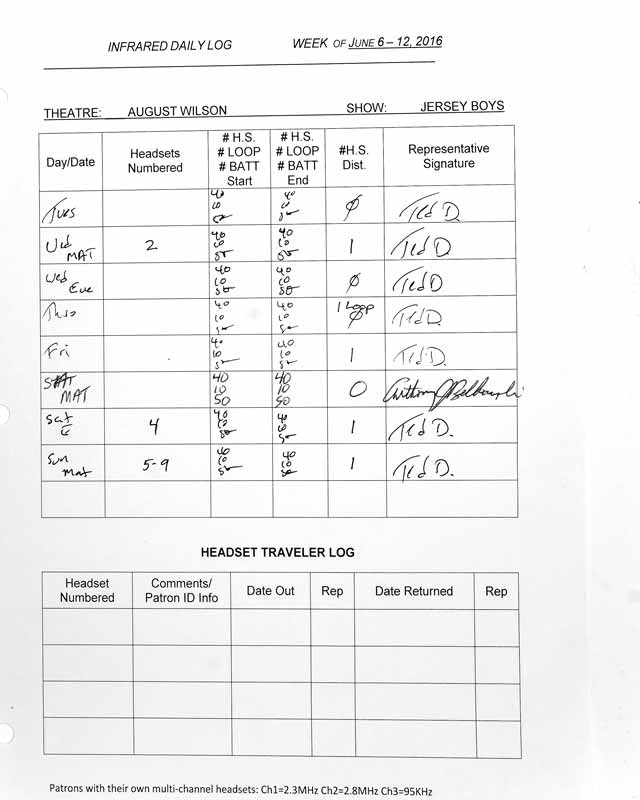 INFRARED DAILY LOG WEEK OF JUNE 6 – 12, 2016
THEATRE: AUGUST WILSON SHOW: JERSEY BOYS
Day/Date Headsets Numbered # H.S. # LOOP # BATT Start # H.S. # LOOP # BATT End #H.S. Dist. Representative Signature
Tues 40 10 50 40 10 50 0 Ted D
Wed MAT 2 40 10 50 40 10 50 1 Ted D
Wed Eve 40 10 50 40 10 50 0 Ted D
40 10 50 40 10 50 1 Loop 0 Ted D.
Fri 40 10 50 40 10 50 1 Ted D.
SAT MAT 40 10 50 40 10 50 0 Anthony J
Sat E 4 40 10 50 40 10 50 1 Ted D.
Sun Mat 5-9 40 10 50 40 10 50 1 Ted D.
HEADSET TRAVELER LOG
Headset Numbered Comments/ Patron ID Info Date Out Rep Date Returned Rep
Patrons with their own multi-channel headsets: Ch1=2.3MHz Ch2=2.8MHz Ch3=95KHz